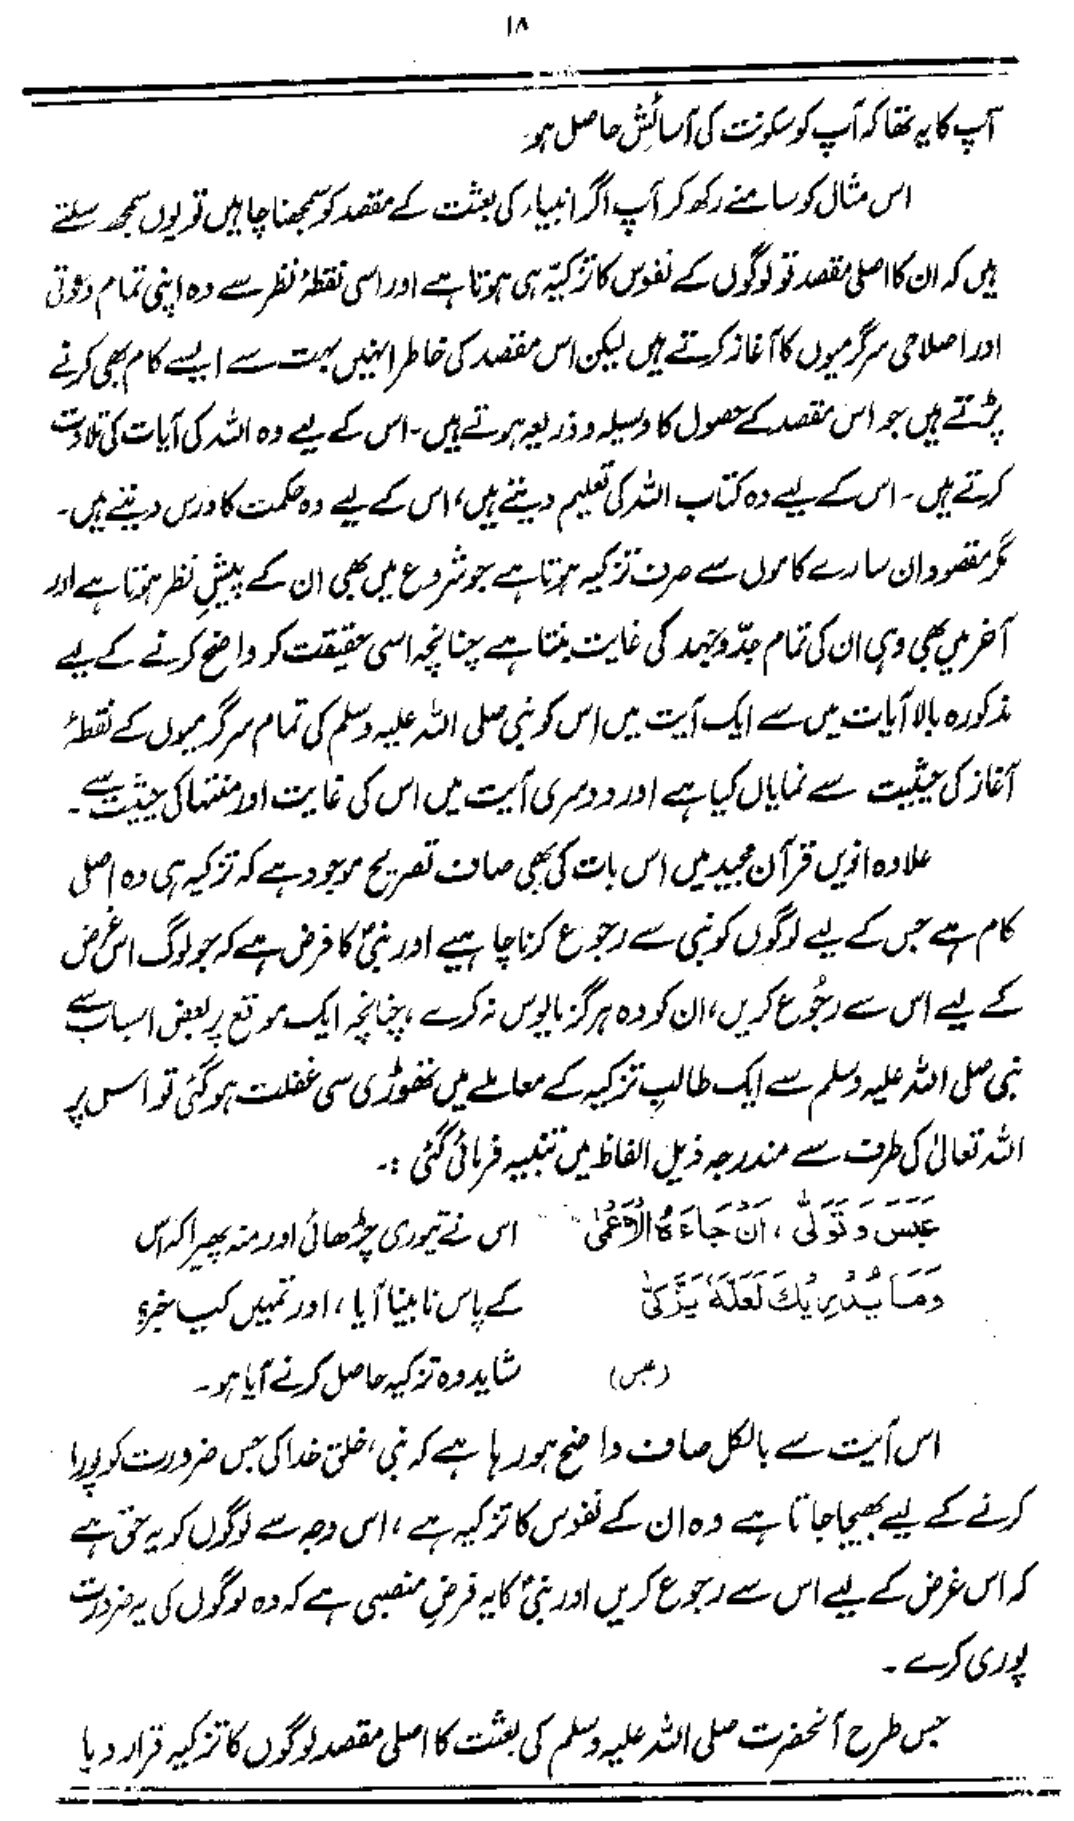 ۱۸
آپ کا یہ تھا کہ آپ کو سکونت کی آسائش حاصل ہو۔
اس مثال کو سامنے رکھ کر آپ اگر انبیاء کی بعثت کے مقصد کو سمجھنا چاہیں تو یوں سمجھ سکتے
ہیں کہ ان کا اصلی مقصد تو لوگوں کے نفوس کا تزکیّہ ہی ہوتا ہے اور اسی نقطۂ نظر سے وہ اپنی تمام دعوتی
اور اصلاحی سرگرمیوں کا آغاز کرتے ہیں لیکن اس مقصد کی خاطر انہیں بہت سے ایسے کام بھی کرنے
پڑتے ہیں جو اس مقصد کے حصول کا وسیلہ و ذریعہ ہوتے ہیں۔ اس کے لیے وہ اللہ کی آیات کی تلاوت
کرتے ہیں۔ اس کے لیے وہ کتاب اللہ کی تعلیم دیتے ہیں، اس کے لیے وہ حکمت کا درس دیتے ہیں۔
مگر مقصود ان سارے کاموں سے صرف تزکیہ ہوتا ہے جو شروع میں بھی ان کے پیشِ نظر ہوتا ہے اور
آخر میں بھی وہی ان کی تمام جدّ و جہد کی غایت بنتا ہے چنانچہ اسی حقیقت کو واضح کرنے کے لیے
مذکورہ بالا آیات میں سے ایک آیت میں اس کو نبی صلی اللہ علیہ وسلم کی تمام سرگرمیوں کے نقطۂ
آغاز کی حیثیت سے نمایاں کیا ہے اور دوسری آیت میں اس کی غایت اور منتہا کی حیثیت سے۔
علاوہ ازیں قرآن مجید میں اس بات کی بھی صاف تصریح موجود ہے کہ تزکیہ ہی وہ اصلی
کام ہے جس کے لیے لوگوں کو نبی سے رجوع کرنا چاہیے اور نبیؐ کا فرض ہے کہ جو لوگ اس غرض
کے لیے اس سے رجُوع کریں، ان کو وہ ہرگز مایوس نہ کرے، چنانچہ ایک موقع پر بعض اسباب سے
نبی صلی اللہ علیہ وسلم سے ایک طالبِ تزکیہ کے معاملے میں تھوڑی سی غفلت ہو گئی تو اس پر
اللہ تعالیٰ کی طرف سے مندرجہ ذیل الفاظ میں تنبیہ فرمائی گئی :۔
عَبَسَ وَ تَوَلّٰی ، اَنْ جَاءَہُ الْاَعْمٰی اس نے تیوری چڑھائی اور منہ پھیرا کہ اس
وَمَا یُدْرِیْکَ لَعَلَّہٗ یَزَّکّٰی کے پاس نابینا آیا، اور تمہیں کیا خبر؟
(عبس) شاید وہ تزکیہ حاصل کرنے آیا ہو۔
اس آیت سے بالکل صاف واضح ہو رہا ہے کہ نبی، خلق خدا کی جس ضرورت کو پورا
کرنے کے لیے بھیجا جاتا ہے وہ ان کے نفوس کا تزکیہ ہے، اس وجہ سے لوگوں کو یہ حق ہے
کہ اس غرض کے لیے اس سے رجوع کریں اور نبیؐ کا یہ فرضِ منصبی ہے کہ وہ لوگوں کی یہ ضرورت
پوری کرے۔
جس طرح آنحضرت صلی اللہ علیہ وسلم کی بعثت کا اصلی مقصد لوگوں کا تزکیہ قرار دیا